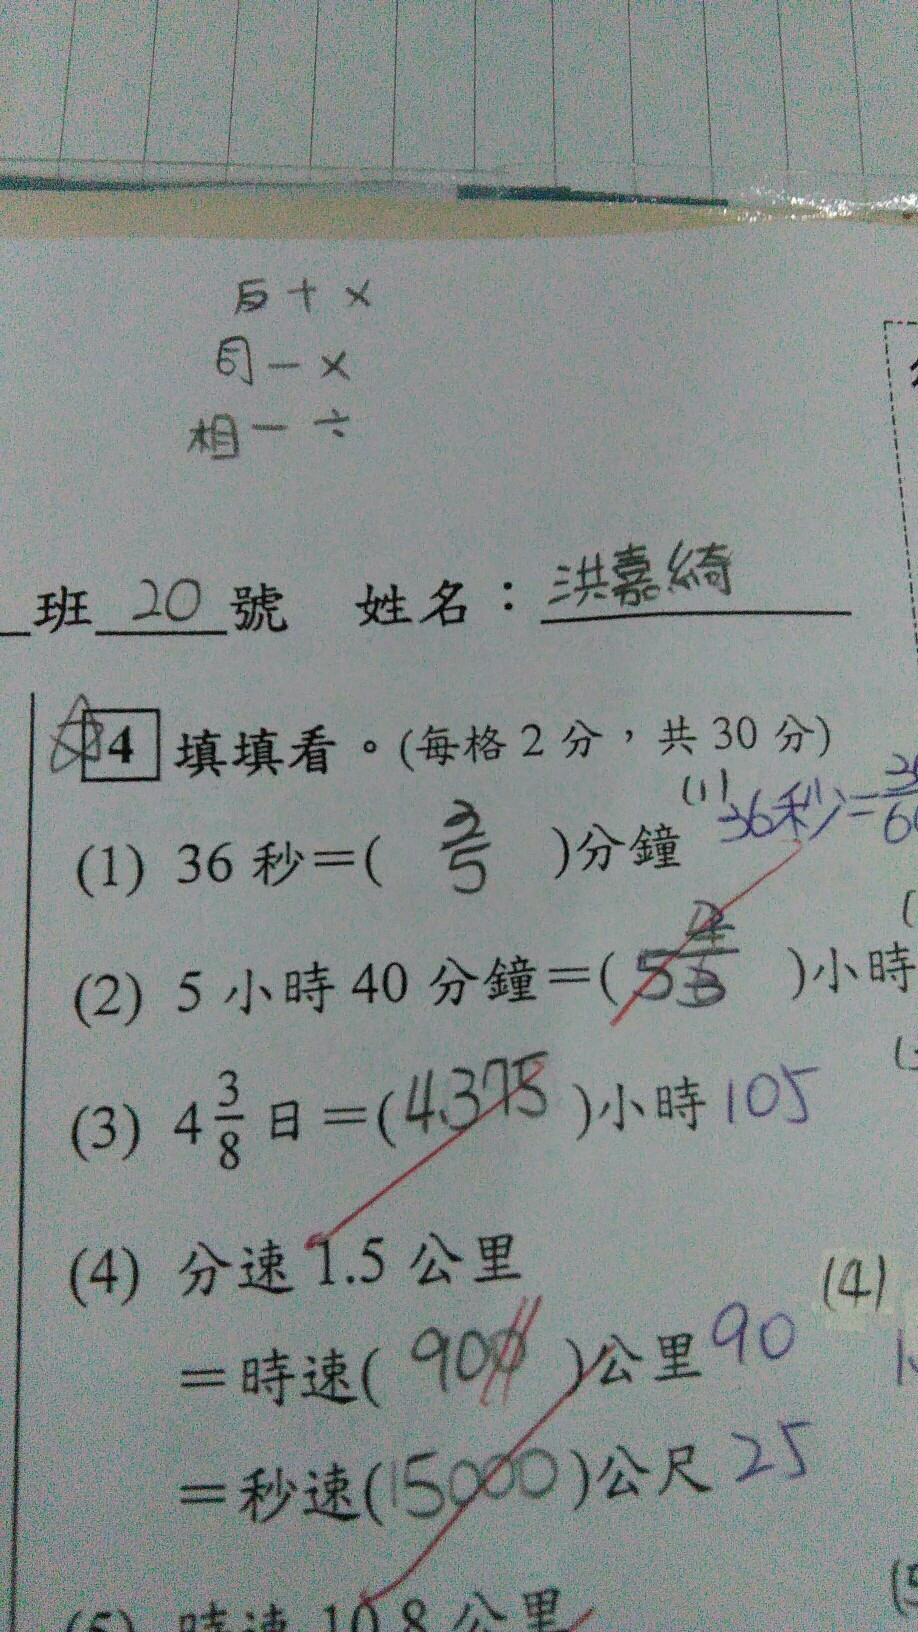 反 + ×
同 - ×
相 - ÷
班 20 號 姓名：洪嘉綺
4 填填看。(每格 2 分，共 30 分)
(1) 36 秒=( 3/5 )分鐘 (1) 36秒=
(2) 5 小時 40 分鐘=( 5 )小時
(3) 4 3/8 日=(4.375)小時 105
(4) 分速 1.5 公里 (4)
=時速( 900 )公里 90
=秒速(15000)公尺 25
(5) 時速 10.8 公里